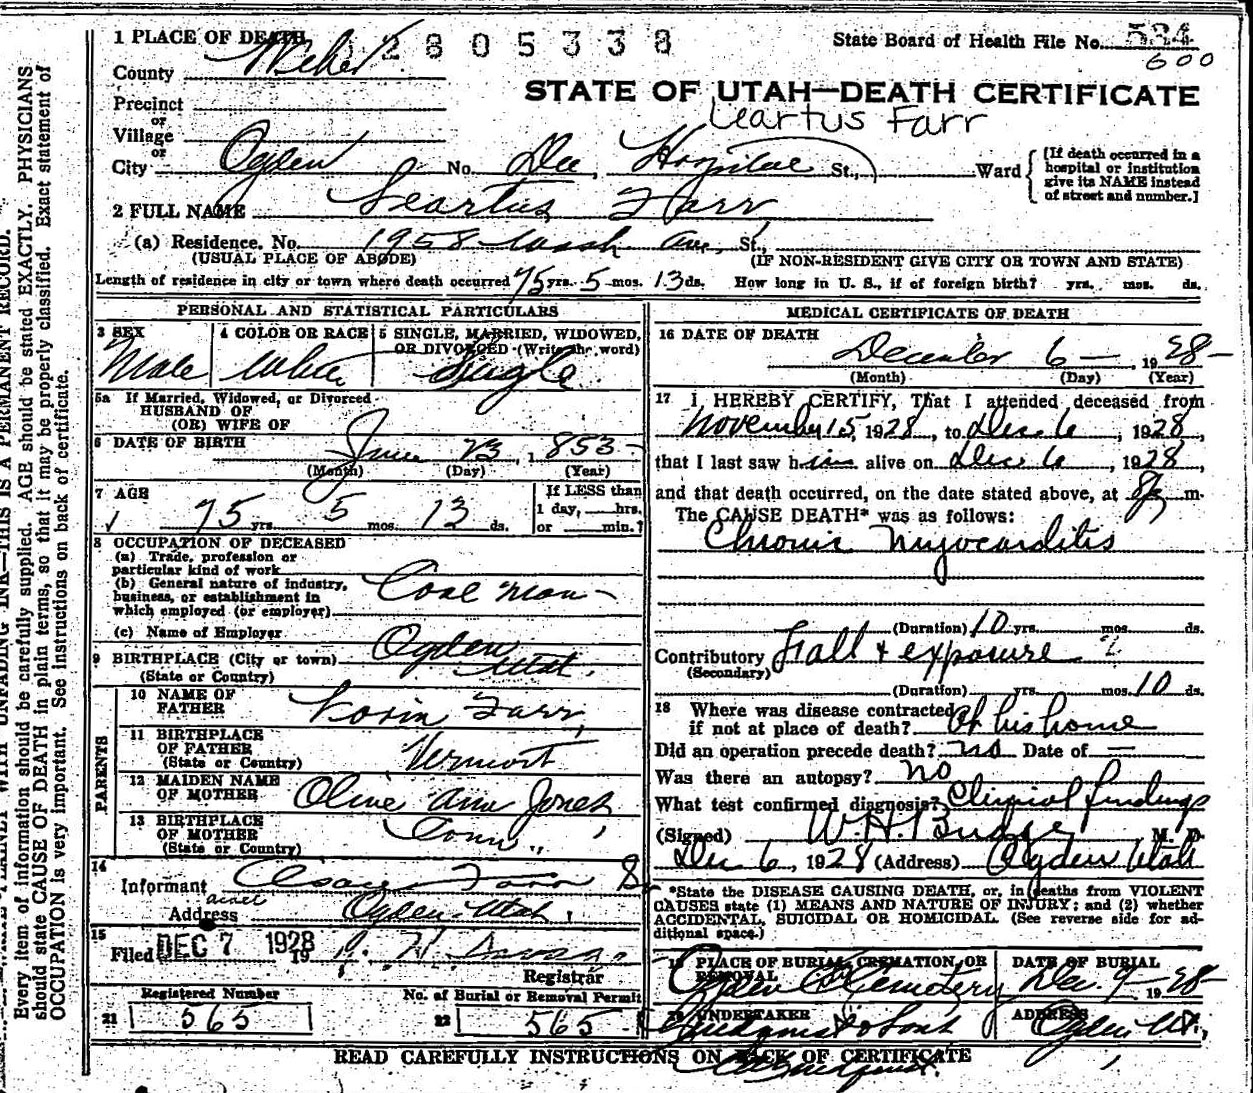 1 PLACE OF DEATH 2805338 State Board of Health File No. 534
600
County Weber
STATE OF UTAH—DEATH CERTIFICATE
Leartus Farr
Precinct
or
Village
or
City Ogden No. Dee Hospital St., Ward [If death occurred in a hospital or institution give its NAME instead of street and number.]
2 FULL NAME Leartus Farr
(a) Residence. No. 1958 Wash Ave, St.,
(USUAL PLACE OF ABODE) (IF NON-RESIDENT GIVE CITY OR TOWN AND STATE)
Length of residence in city or town where death occurred 75 yrs. 5 mos. 13 ds. How long in U. S., if of foreign birth? yrs. mos. ds.
PERSONAL AND STATISTICAL PARTICULARS
3 SEX 4 COLOR OR RACE 5 SINGLE, MARRIED, WIDOWED,
OR DIVORCED (Write the word)
Male White Single
5a If Married, Widowed, or Divorced
HUSBAND OF
(OR) WIFE OF
6 DATE OF BIRTH June 23, 1853
(Month) (Day) (Year)
7 AGE If LESS than
75 yrs. 5 mos. 13 ds. 1 day, hrs.
or min.?
8 OCCUPATION OF DECEASED
(a) Trade, profession or
particular kind of work
(b) General nature of industry,
business, or establishment in
which employed (or employer) Coal Man
(c) Name of Employer
9 BIRTHPLACE (City or town) Ogden
(State or Country) Utah.
PARENTS
10 NAME OF
FATHER Lorin Farr,
11 BIRTHPLACE
OF FATHER
(State or Country) Vermont
12 MAIDEN NAME
OF MOTHER Olive Ann Jones
13 BIRTHPLACE
OF MOTHER
(State or Country) Conn.,
14
Informant Farr
Address Ogden, Utah,
15
Filed DEC 7 1928
19
Registrar
Registered Number No. of Burial or Removal Permit
21 565 22 565
MEDICAL CERTIFICATE OF DEATH
16 DATE OF DEATH
December 6 — , 1928 —
(Month) (Day) (Year)
17 I HEREBY CERTIFY, That I attended deceased from
November 15, 1928, to Dec 6, 1928,
that I last saw him alive on Dec 6, 1928,
and that death occurred, on the date stated above, at m.
The CAUSE DEATH* was as follows:
Chronic Myocarditis
(Duration) 10 yrs. mos. ds.
Contributory Fall & exposure
(Secondary)
(Duration) yrs. mos. 10 ds.
18 Where was disease contracted
if not at place of death? At his home
Did an operation precede death? no Date of —
Was there an autopsy? no
What test confirmed diagnosis? Clinical findings
(Signed) W.H. Budge M. D.
Dec 6, 1928 (Address) Ogden Utah
*State the DISEASE CAUSING DEATH, or, in deaths from VIOLENT
CAUSES state (1) MEANS AND NATURE OF INJURY; and (2) whether
ACCIDENTAL, SUICIDAL OR HOMICIDAL. (See reverse side for ad-
ditional space.)
19 PLACE OF BURIAL, CREMATION, OR DATE OF BURIAL
REMOVAL
Ogden C Cemetery Dec. 9 — 1928 —
20 UNDERTAKER ADDRESS
& Sons Ogden Ut.,
READ CAREFULLY INSTRUCTIONS ON BACK OF CERTIFICATE
INK—THIS IS A PERMANENT RECORD.
Every item of information should be carefully supplied. AGE should be stated EXACTLY. PHYSICIANS
should state CAUSE OF DEATH in plain terms, so that it may be properly classified. Exact statement of
OCCUPATION is very important. See instructions on back of certificate.